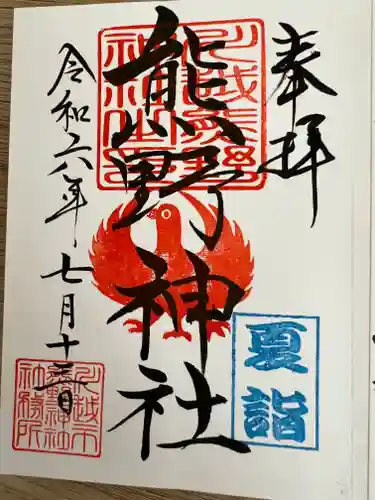 奉拝
熊野神社
令和六年七月十三日
夏詣
川越市
熊野神社
社務所